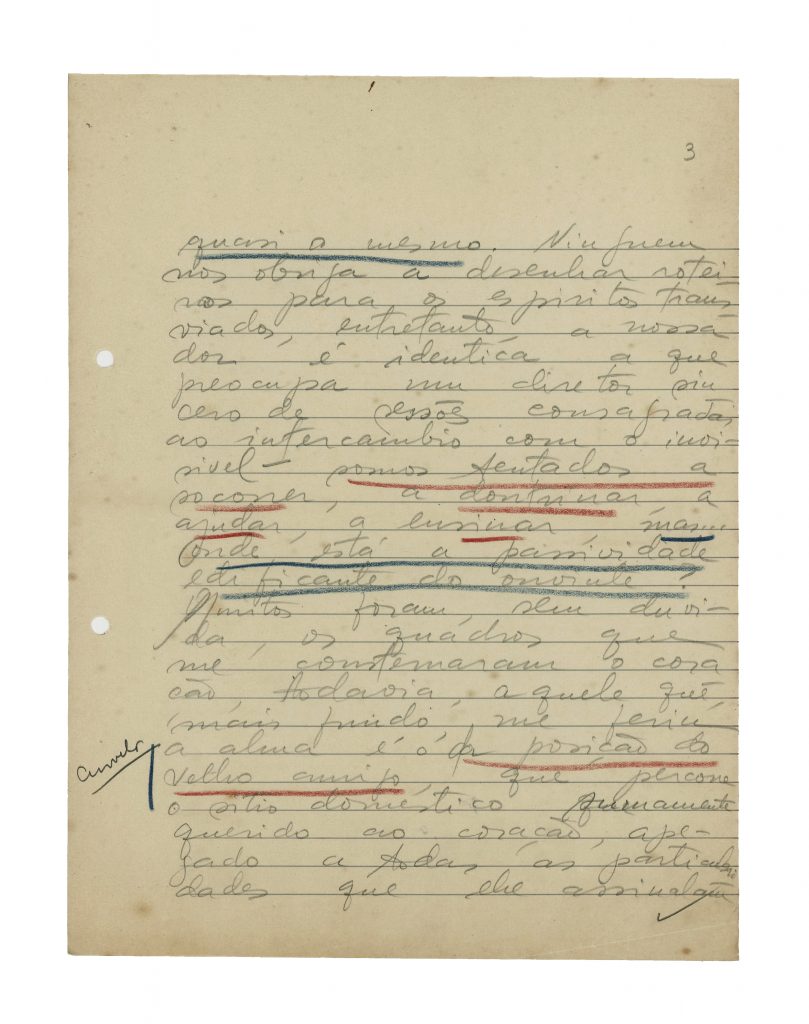 3
quasi o mesmo. Ninguem
nos obriga a desenhar rotei-
ros para os espiritos trans
viados, entretanto, a nossa
dor é identica a que
preocupa um diretor sin
cero de sessões consagradas
ao intercambio com o invi-
sivel — somos tentados a
socorrer, a doutrinar, a
ajudar, a ensinar, mas...
onde está a passividade
edificante do ouvinte?
Muitos foram, sem duvi-
da, os quadros que
me consternaram o cora
ção, todavia, aquele que
mais fundo me feriu
a alma é o da posição do
velho amigo, que percorre
o sitio doméstico sumamente
querido ao coração, ape-
gado a todas as particulari
dades que ele assinalou